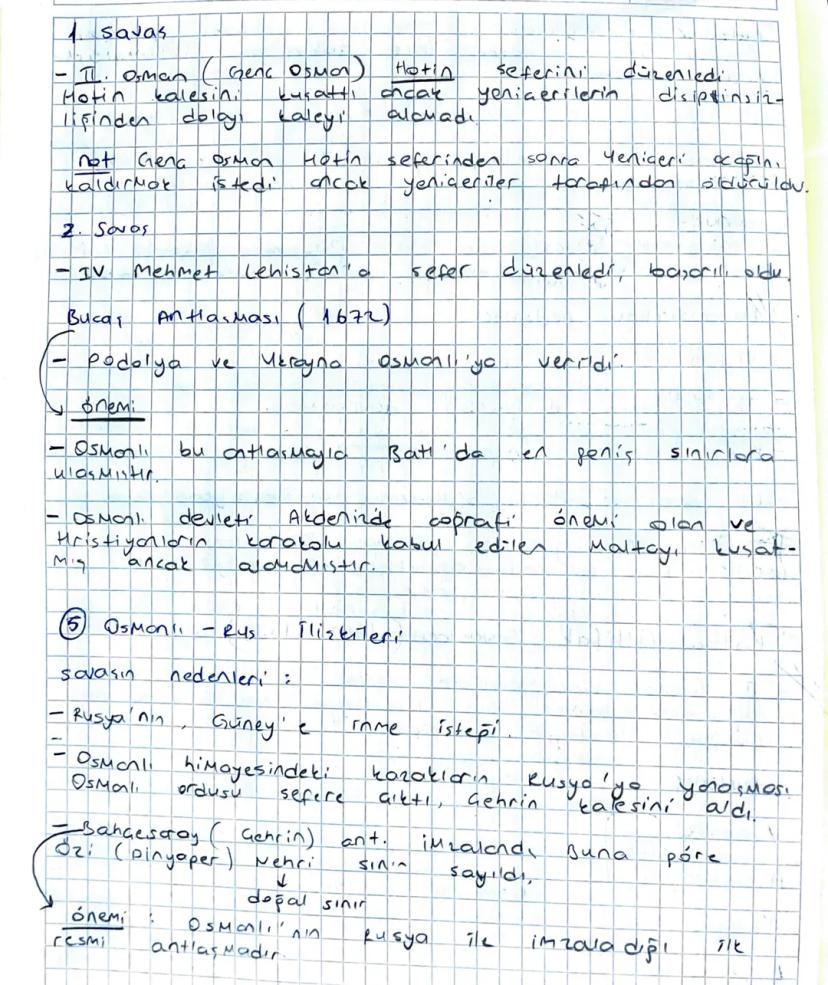 1. Savaş
- II. Osman (Genç Osman) Hotin seferini düzenledi
Hotin kalesini kuşattı ancak yeniçerilerin disiplinsiz-
liğinden dolayı kaleyi alamadı.
not Genç Osman Hotin seferinden sonra Yeniçeri ocağını
kaldırmak istedi ancak yeniçeriler tarafından öldürüldü.
2. Savaş
- IV Mehmet Lehistan'a sefer düzenledi, başarılı oldu.
Bucaş Antlaşması (1672)
- Podolya ve Ukrayna Osmanlı'ya verildi.
önemi
- Osmanlı bu antlaşmayla Batı'da en geniş sınırlara
ulaşmıştır.
- Osmanlı devleti Akdenizde coğrafi önemi olan ve
Hristiyanların karakolu kabul edilen Maltayı kuşat-
mış ancak alamamıştır.
5 Osmanlı - Rus İlişkileri
Savaşın nedenleri :
- Rusya'nın, Güney'e inme isteği.
- Osmanlı himayesindeki kazakların Rusya'ya yanaşması
Osmanlı ordusu sefere çıktı, Çehrin kalesini aldı.
- Bahçesaray (Çehrin) ant. imzalandı Buna göre
Özi (Dinyeper) Nehri sınır sayıldı,
↓
doğal sınır
önemi : Osmanlı'nın Rusya ile imzaladığı ilk
resmi antlaşmadır.